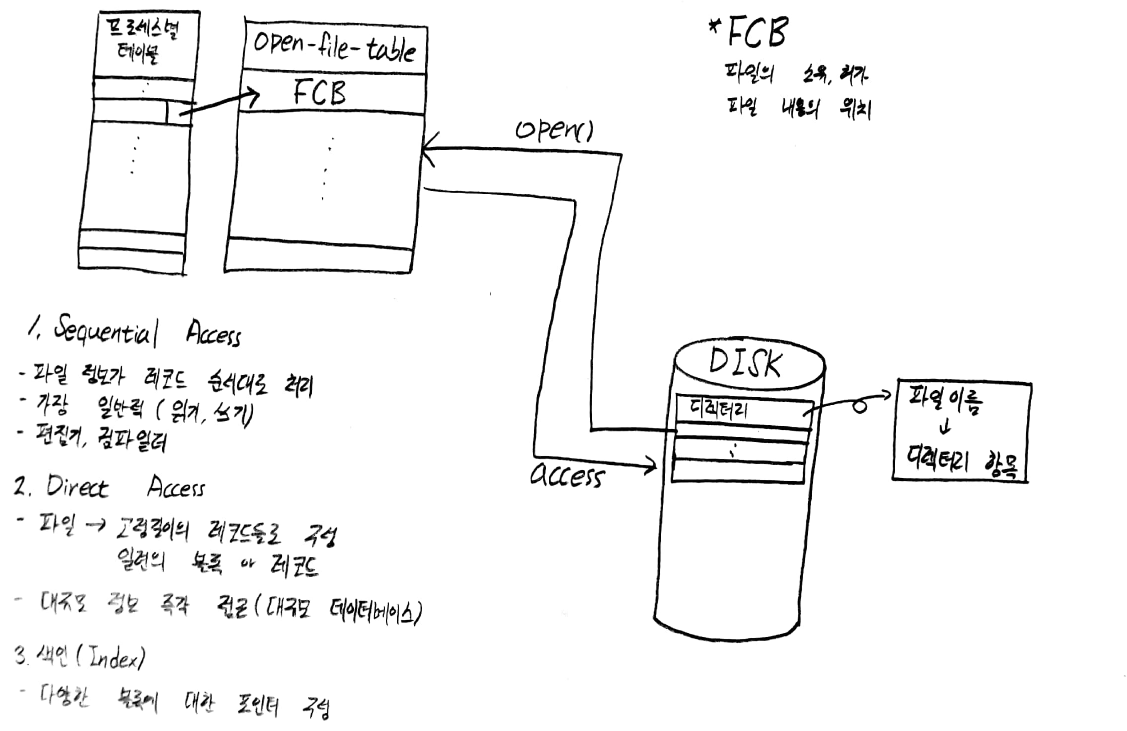 프로세스별
테이블
open-file-table
FCB
*FCB
파일의 소유, 허가
파일 내용의 위치
open()
access
DISK
디렉터리
파일이름
↓
디렉터리 항목
1. Sequential Access
- 파일 정보가 레코드 순서대로 처리
- 가장 일반적 (읽기, 쓰기)
- 편집기, 컴파일러
2. Direct Access
- 파일 → 고정길이의 레코드들로 구성
일련의 블록 or 레코드
- 대규모 정보 즉각 접근 (대규모 데이터베이스)
3. 색인 (Index)
- 다양한 블록에 대한 포인터 구성